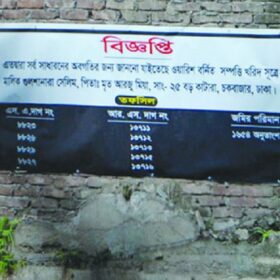 বিজ্ঞপ্তি
এতদ্বারা সর্ব সাধারনের অবগতির জন্য জানানো যাইতেছে ওয়ারিশ বর্নিত সম্পত্তি খরিদ সূত্রে
মালিক গুলশানারা সেলিম, পিতাঃ মৃত আরজু মিয়া, সাং- ২৫ বড় কাটারা, চকবাজার, ঢাকা।
তফসিল
এস. এ.দাগ নং আর. এস. দাগ নং জমির পরিমান
৮৮২৩ ১৩৭১১ ১৬৫৪ অযুতাংশ
৮৮২৪ ১৩৭১২
৮৮২৬ ১৩৭১৩
৮৮২৭ ১৩৭১৫
১৩৭১৬